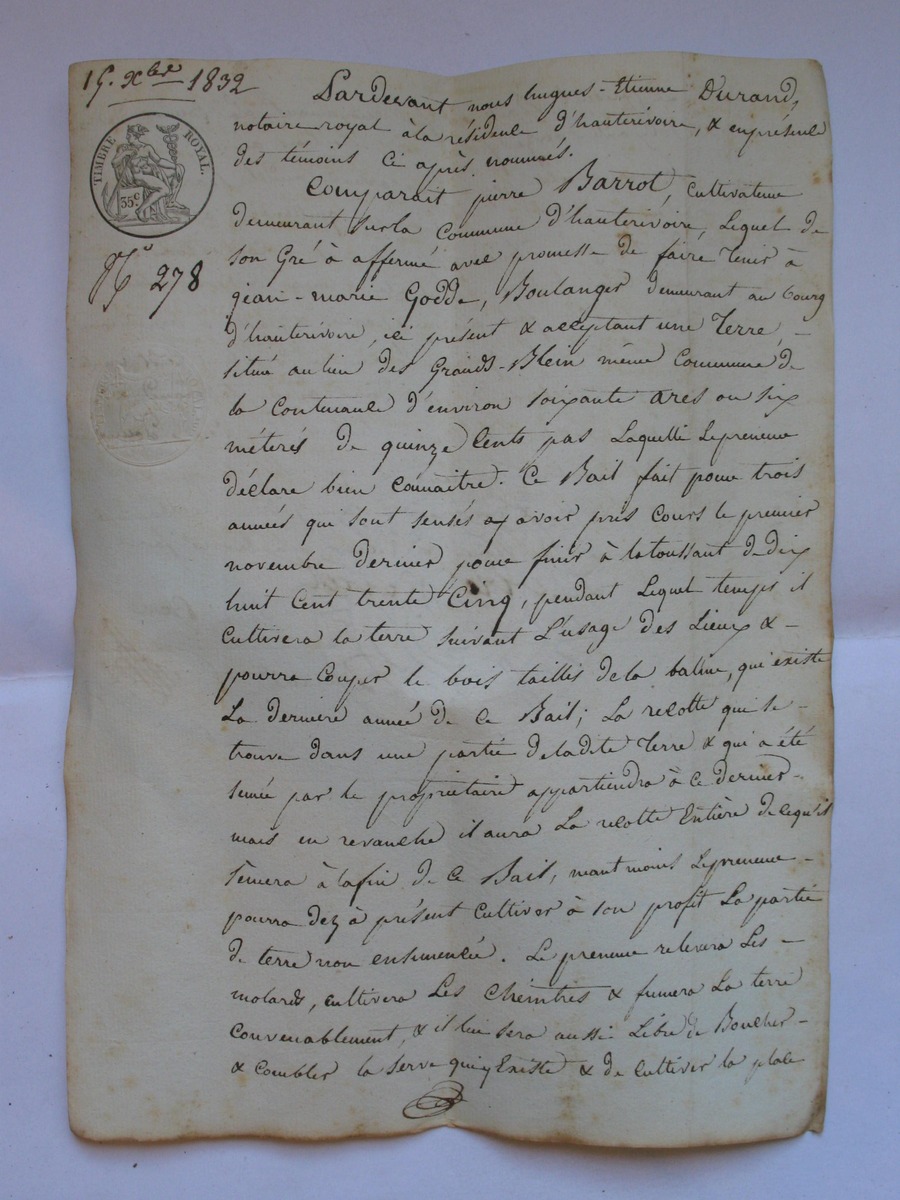 15. Xbre 1832
TIMBRE ROYAL.
35c
No 278
Pardevant nous hugues-Etienne Durand,
notaire royal à la résidence d'hauterivoire, & en présence
des témoins Ci après nommés.
Comparait pierre Barrot, cultivateur
demeurant sur la Commune d'hauterivoire, Lequel de
son Gré à affermé avec promesse de faire tenir à
jean-marie Godde, Boulanger demeurant au bourg
d'hauterivoire, ici présent & acceptant une Terre,
situé au lieu des Grands-Blein même Commune de
la Contenance d'environ soixante ares ou six
méterés de quinze Cents pas Laquelle Le preneur
déclare bien connaitre. Ce Bail fait pour trois
années qui sont sensés y avoir pris Cours le premier
novembre dernier pour finir à la toussant de dix
huit Cent trente Cinq, pendant Lequel temps il
Cultivera la terre suivant L'usage des Lieux &
pourra Couper le bois taillis de la balme, qui existe
La derniere année de Ce Bail; La recolte qui se
trouve dans une partie de ladite Terre & qui a été
semée par le propriétaire appartiendra à Ce dernier
mais en revanche il aura La recolte Entière de Ce qu'il
sèmera à la fin de Ce Bail, neantmoins Le preneur
pourra dez à présent Cultiver à son profit La partie
de terre non ensemencée. Le preneur relevera Les
molards, cultivera Les Cheintres & fumera La terre
Convenablement, & il lui sera aussi Libre de Boucher
& Combler la serve qui y Existe & de Cultiver la place